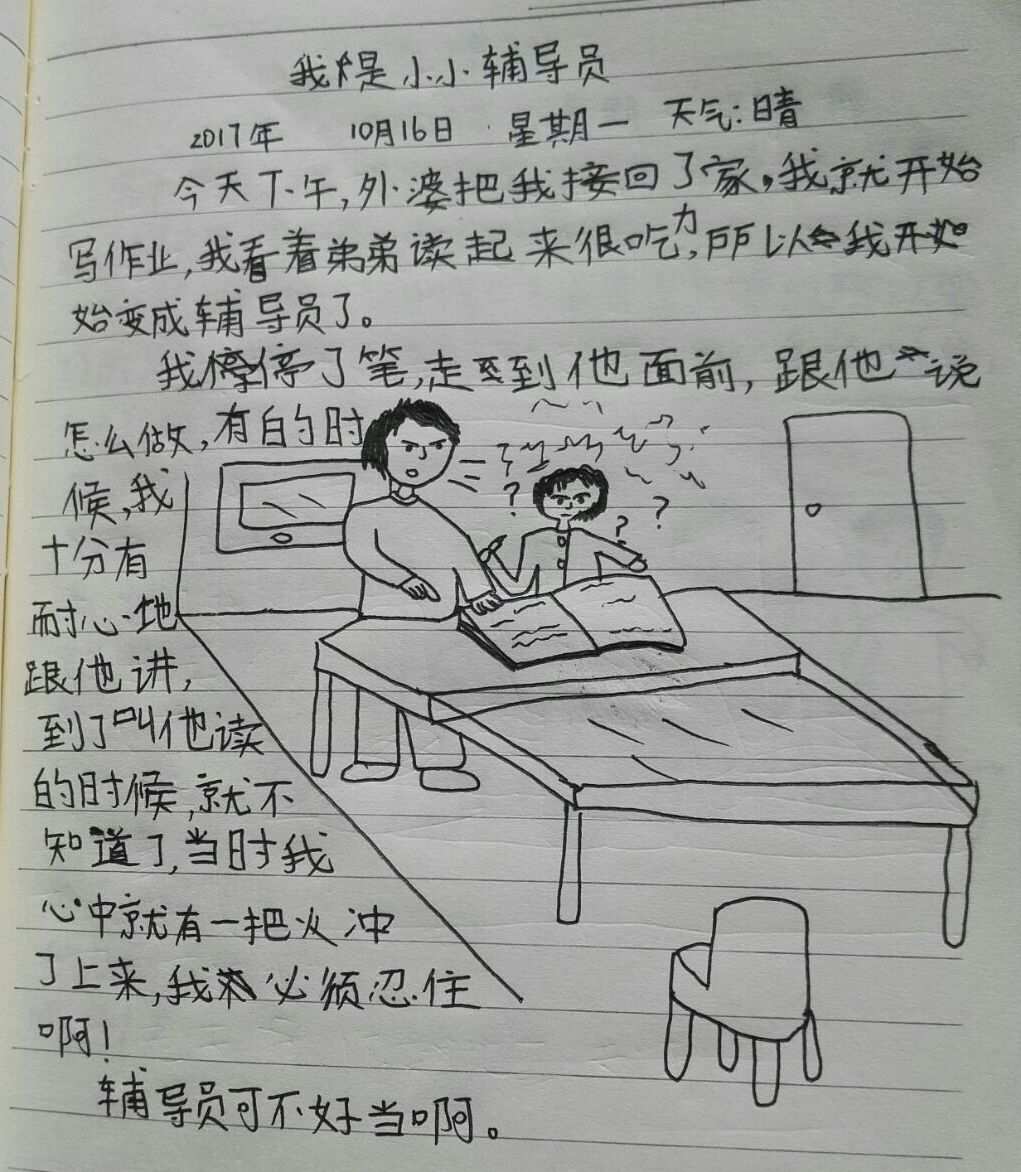 我是小小辅导员
2017年 10月16日 星期一 天气:晴
今天下午,外婆把我接回了家,我就开始
写作业,我看着弟弟读起来很吃力,所以我开
始变成辅导员了。
我停了笔,走到他面前,跟他说
怎么做,有的时
候,我
十分有
耐心地
跟他讲,
到了叫他读
的时候,就不
知道了,当时我
心中就有一把火冲
了上来,我必须忍住
啊!
辅导员可不好当啊。